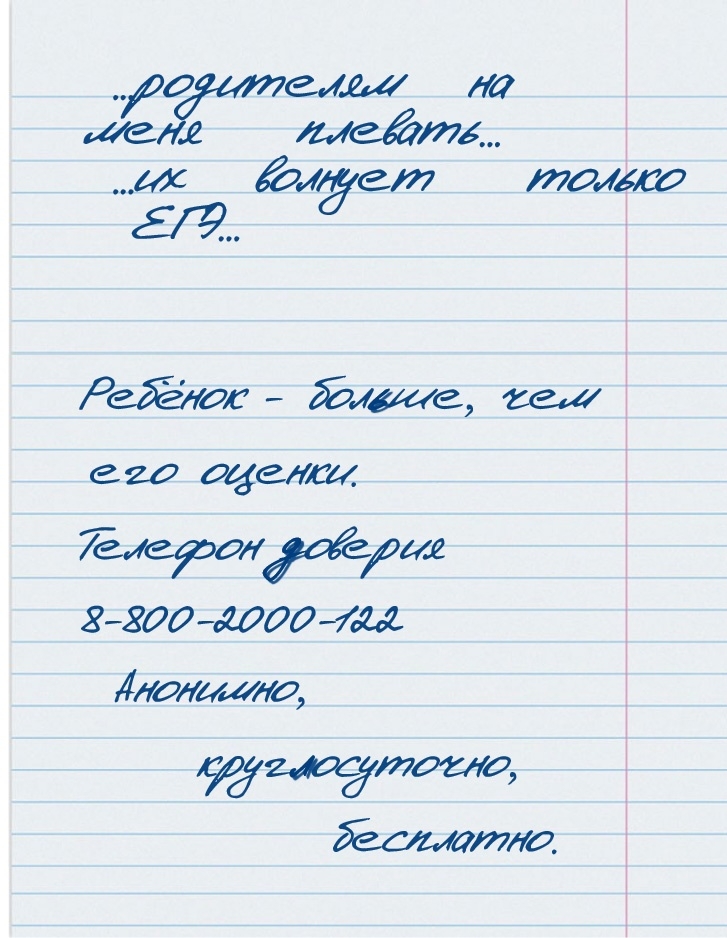 ...родителям на
меня плевать...
...их волнует только
ЕГЭ...
Ребёнок - больше, чем
его оценки.
Телефон доверия
8-800-2000-122
Анонимно,
круглосуточно,
бесплатно.